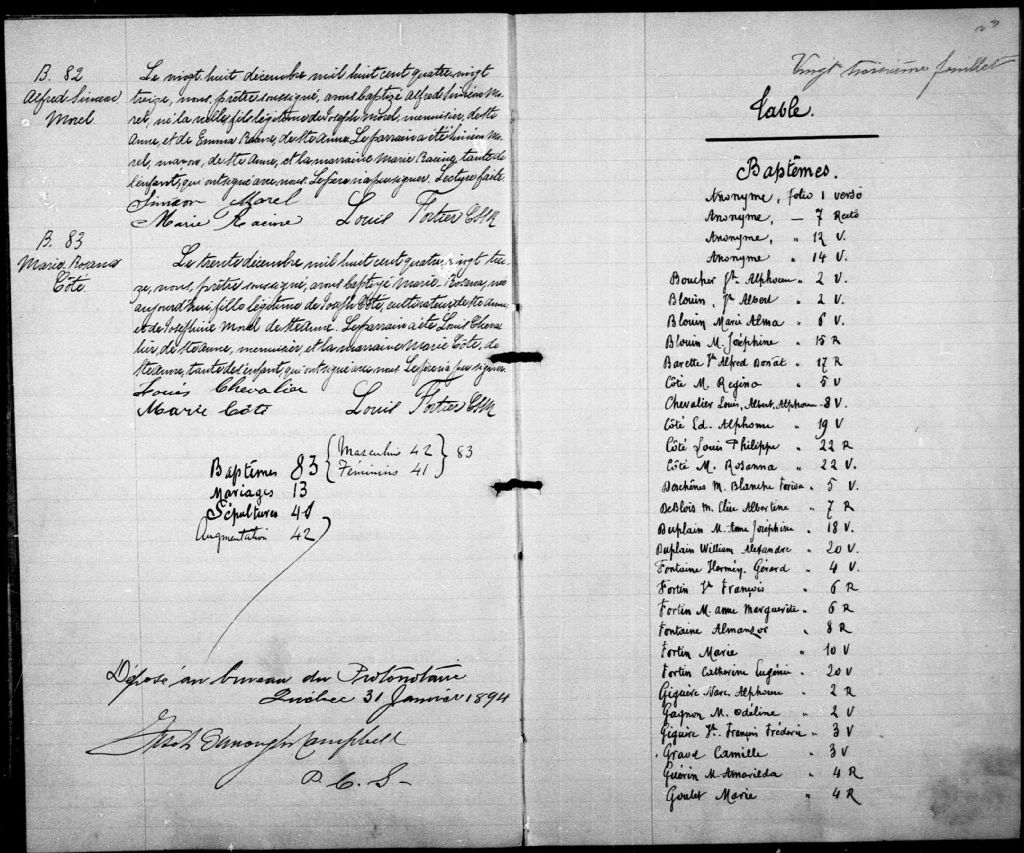 B. 82
Alfred Siméon
Morel.
Le vingt huit décembre mil huit cent quatre vingt
treize, nous, prêtre soussigné, avons baptizé Alfred Siméon Mo-
rel, né la veille, fils légitime de Joseph Morel, menuisier, de Ste
Anne, et de Emma Racine, de Ste Anne. Le parrain a été Siméon Mo-
rel, maçon, de Ste Anne, et la marraine Marie Racine, tante de
l'enfant, qui ont signé avec nous. Le père n'a pu signer. Lecture faite.
Simeon Morel
Marie Racine Louis Fortier
B. 83
Marie Rosanna
Côté.
Le trente décembre mil huit cent quatre vingt trei-
ze, nous, prêtre soussigné, avons baptizé Marie Rosanna, née
aujourd'hui, fille légitime de Joseph Côté, cultivateur, de Ste Anne,
et de Joséphine Morel de Ste Anne. Le parrain a été Louis Cheva-
lier, de Ste Anne, menuisier, et la marraine Marie Côté, de
Ste Anne, tante de l'enfant, qui ont signé avec nous. Le père n'a pu signer.
Louis Chevalier
Marie Côté Louis Fortier
Baptêmes 83 { Masculins 42 } 83
Féminins 41
Mariages 13
Sépultures 41
Augmentation 42
Déposé au bureau du Protonotaire
Québec 31 Janvier 1894
Campbell
P. C. S.
23
Vingt troisième feuillet
Table.
Baptêmes.
Anonyme, folio 1 verso
Anonyme, — 7 Recto
Anonyme, " 12 V.
Anonyme " 14 V.
Boucher Jh Alphonse " 2 V.
Blouin, Jh Albert " 2 V.
Blouin Marie Alma " 6 V.
Blouin M. Joséphine " 15 R
Barette Jh Alfred Donat " 17 R
Côté M. Regina " 5 V
Chevalier Louis, Albert, Alphonse " 8 V.
Côté Ed. Alphonse " 19 V
Côté Louis Philippe " 22 R
Côté M. Rosanna " 22 V.
Deschênes M. Blanche " 5 V.
DeBlois M. Elise Albertine " 7 R
Duplain M. Anne Joséphine " 18 V.
Duplain William Alexandre " 20 V.
Fontaine Gérard " 4 V.
Fortin Jh François " 6 R
Fortin M. Anne Marguerite " 6 R
Fontaine Almanzor " 8 R
Fortin Marie " 10 V
Fortin Catherine Eugénie " 20 V
Giguère Narc. Alphonse " 2 R
Gagnon M. Odéline " 2 V
Giguère Jh. François Fréderic " 3 V
Gravel Camille " 3 V
Guérin M. Amarilda " 4 R
Goulet Marie " 4 R